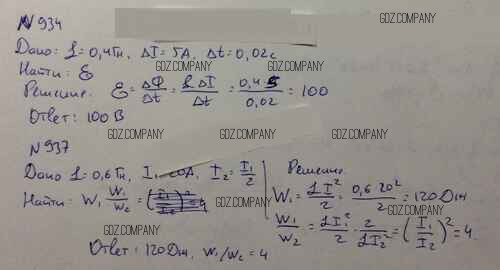 № 934
GDZ.COMPANY
Дано: L = 0,4 Гн, ΔI = 5А, Δt = 0,02 с
GDZ.COMPANY
Найти: ℰ
GDZ.COMPANY
Решение. ℰ = ΔΦ/Δt = LΔI/Δt = 0,4·5/0,02 = 100
GDZ.COMPANY
Ответ: 100 В
GDZ.COMPANY
№ 937
GDZ.COMPANY
Дано L = 0,6 Гн, I₁ 20А, I₂ = I₁/2
Найти: W₁ W₁/W₂ = (I₁/I₂)² = 4
GDZ.COMPANY
Решение.
W₁ = LI²/2 = 0,6·20²/2 = 120 Дж
GDZ.COMPANY
W₁/W₂ = LI₁²/2 · 2/LI₂² = (I₁/I₂)² = 4.
GDZ.COMPANY
Ответ: 120 Дж, W₁/W₂ = 4